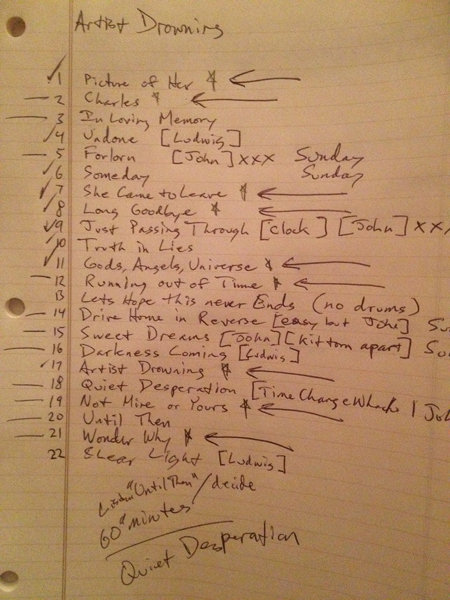 Artist Drowning
1 Picture of Her
2 Charles
3 In Loving Memory
4 Undone [Ludwig]
5 Forlorn [John] xxx Sunday
6 Someday Sunday
7 She Came to Leave
8 Long Goodbye
9 Just Passing Through [Clock] [John] xx
10 Truth in Lies
11 Gods, Angels, Universe
12 Running out of Time
13 Lets Hope this never Ends (no drums)
14 Drive Home in Reverse [easy but John]
15 Sweet Dreams [John] [kit torn apart]
16 Darkness Coming [Ludwig]
17 Artist Drowning
18 Quiet Desperation [Time Change Whacks
19 Not Mine or Yours
20 Until Then
21 Wonder Why
22 Light [Ludwig]
"Until Then" / decide
60" minutes
Quiet Desperation